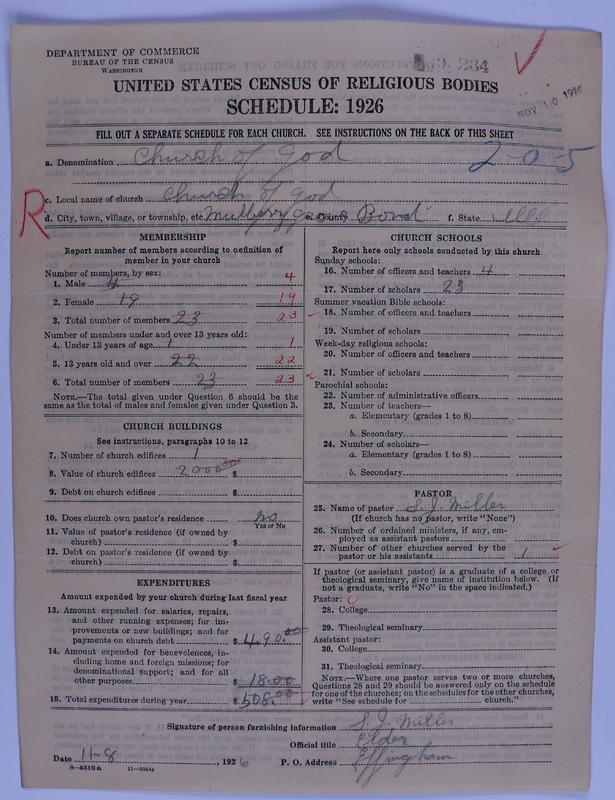 DEPARTMENT OF COMMERCE
BUREAU OF THE CENSUS
WASHINGTON
234
NOV 10 1926
UNITED STATES CENSUS OF RELIGIOUS BODIES
SCHEDULE: 1926
FILL OUT A SEPARATE SCHEDULE FOR EACH CHURCH. SEE INSTRUCTIONS ON THE BACK OF THIS SHEET
a. Denomination Church of God 2-0-5
c. Local name of church Church of God
R
d. City, town, village, or township, etc. Mulberry e. County Bond f. State Ills
MEMBERSHIP
Report number of members according to definition of
member in your church
Number of members, by sex:
1. Male 4 4
2. Female 19 19
3. Total number of members 23 23
Number of members under and over 13 years old:
4. Under 13 years of age 1 1
5. 13 years old and over 22 22
6. Total number of members 23 23
NOTE.—The total given under Question 6 should be the
same as the total of males and females given under Question 3.
CHURCH BUILDINGS
See instructions, paragraphs 10 to 12
7. Number of church edifices 1
8. Value of church edifices $ 2000.00
9. Debt on church edifices $
10. Does church own pastor's residence no
Yes or No
11. Value of pastor's residence (if owned by
church) $
12. Debt on pastor's residence (if owned by
church) $
EXPENDITURES
Amount expended by your church during last fiscal year
13. Amount expended for salaries, repairs,
and other running expenses; for im-
provements or new buildings; and for
payments on church debt $ 490.00
14. Amount expended for benevolences, in-
cluding home and foreign missions; for
denominational support; and for all
other purposes $ 18.00
15. Total expenditures during year $ 508.00
CHURCH SCHOOLS
Report here only schools conducted by this church
Sunday schools:
16. Number of officers and teachers 4
17. Number of scholars 23
Summer vacation Bible schools:
18. Number of officers and teachers
19. Number of scholars
Week-day religious schools:
20. Number of officers and teachers
21. Number of scholars
Parochial schools:
22. Number of administrative officers
23. Number of teachers—
a. Elementary (grades 1 to 8)
b. Secondary
24. Number of scholars—
a. Elementary (grades 1 to 8)
b. Secondary
PASTOR
25. Name of pastor S. J. Miller
(If church has no pastor, write "None")
26. Number of ordained ministers, if any, em-
ployed as assistant pastors
27. Number of other churches served by the
pastor or his assistants 1
If pastor (or assistant pastor) is a graduate of a college or
theological seminary, give name of institution below. (If
not a graduate, write "No" in the space indicated.)
Pastor: 0
28. College
29. Theological seminary
Assistant pastor:
30. College
31. Theological seminary
NOTE.—Where one pastor serves two or more churches,
Questions 28 and 29 should be answered only on the schedule
for one of the churches; on the schedules for the other churches,
write "See schedule for church."
Signature of person furnishing information S. J. Miller
Official title Elder
Date 11-8, 1926 P. O. Address Effingham
8—5518a 11—9351